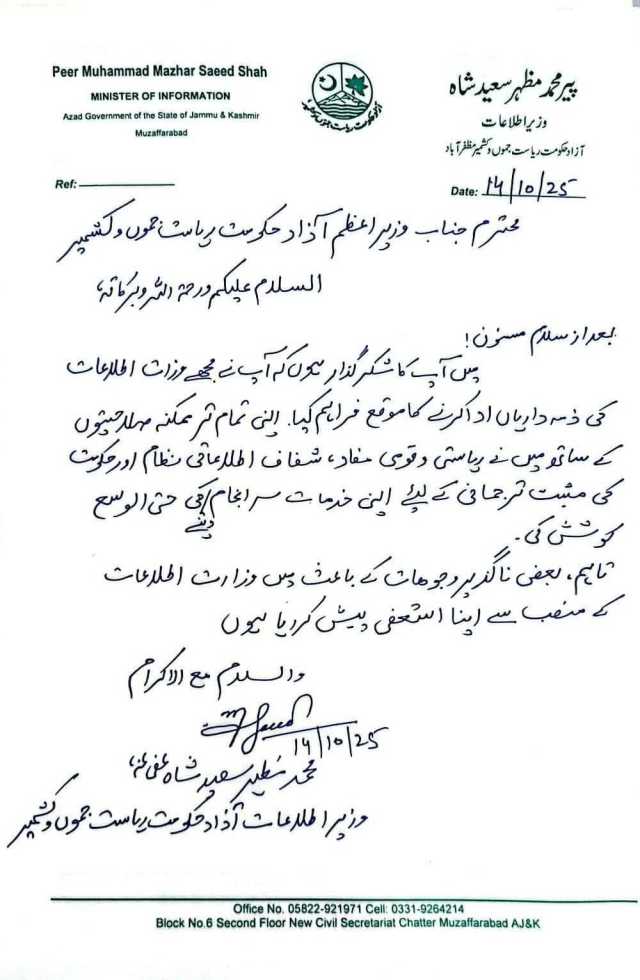 Peer Muhammad Mazhar Saeed Shah
MINISTER OF INFORMATION
Azad Government of the State of Jammu & Kashmir
Muzaffarabad
پیر محمد مظہر سعید شاہ
وزیر اطلاعات
آزاد حکومت ریاست جموں و کشمیر مظفر آباد
Ref:
Date: 14/10/25
محترم جناب وزیر اعظم آزاد حکومت ریاست جموں و کشمیر
السلام علیکم ورحمۃ اللہ وبرکاتہ،
بعد از سلام مسنون!
میں آپ کا شکر گذار ہوں کہ آپ نے مجھے وزرات اطلاعات
کی ذمہ داریاں ادا کرنے کا موقع فراہم کیا. اپنی تمام تر ممکنہ صلاحیتوں
کے ساتھ میں نے ریاستی و قومی مفاد، شفاف اطلاعاتی نظام اور حکومت
کی مثبت ترجمانی کے لیئے اپنی خدمات سر انجام دینے کی حتی الوسع
کوشش کی۔
تاہم، بعض ناگزیر وجوہات کے باعث میں وزارت اطلاعات
کے منصب سے اپنا استعفی پیش کر رہا ہوں
والسلام مع الاکرام
14/10/25
محمد مظہر سعید شاہ عفی عنہ،
وزیر اطلاعات آزاد حکومت ریاست جموں و کشمیر
Office No. 05822-921971 Cell: 0331-9264214
Block No.6 Second Floor New Civil Secretariat Chatter Muzaffarabad AJ&K